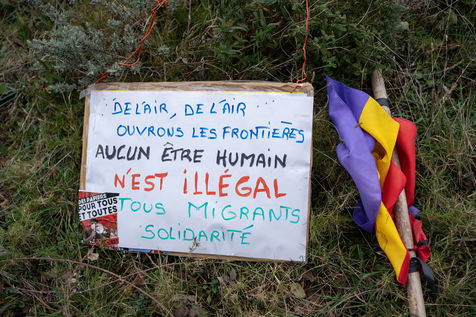 DE L'AIR, DE L'AIR
OUVRONS LES FRONTIÈRES
AUCUN ÊTRE HUMAIN
N'EST ILLÉGAL
TOUS MIGRANTS
SOLIDARITÉ
DES PAPIERS
POUR TOUS
ET TOUTES